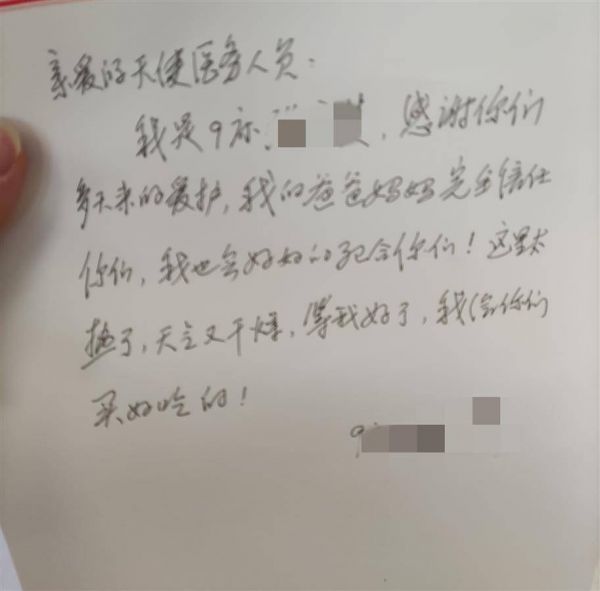 亲爱的天使医务人员:
我是9床,感谢你们
多天来的爱护,我的爸爸妈妈完全信任
你们,我也会好好的配合你们!这里太
热了,天气又干燥,等我好了,我给你们
买好吃的!
9